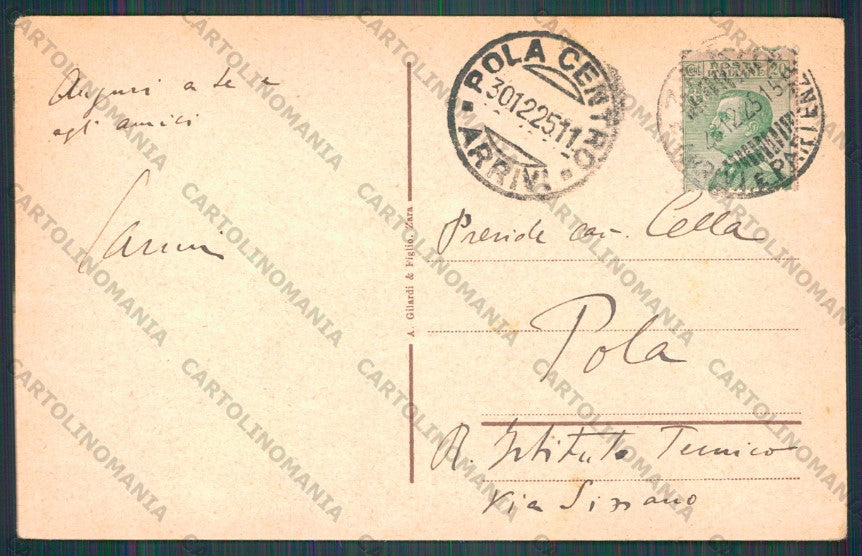 Auguri a te e
agli amici
A. Gilardi & Figlio, Zara
POLA CENTRO
301225 11
ARRIVI
POSTE
ITALIANE
Preside cav. Cella
Pola
R. Istituto Tecnico
Via Sissano
CARTOLINOMANIA